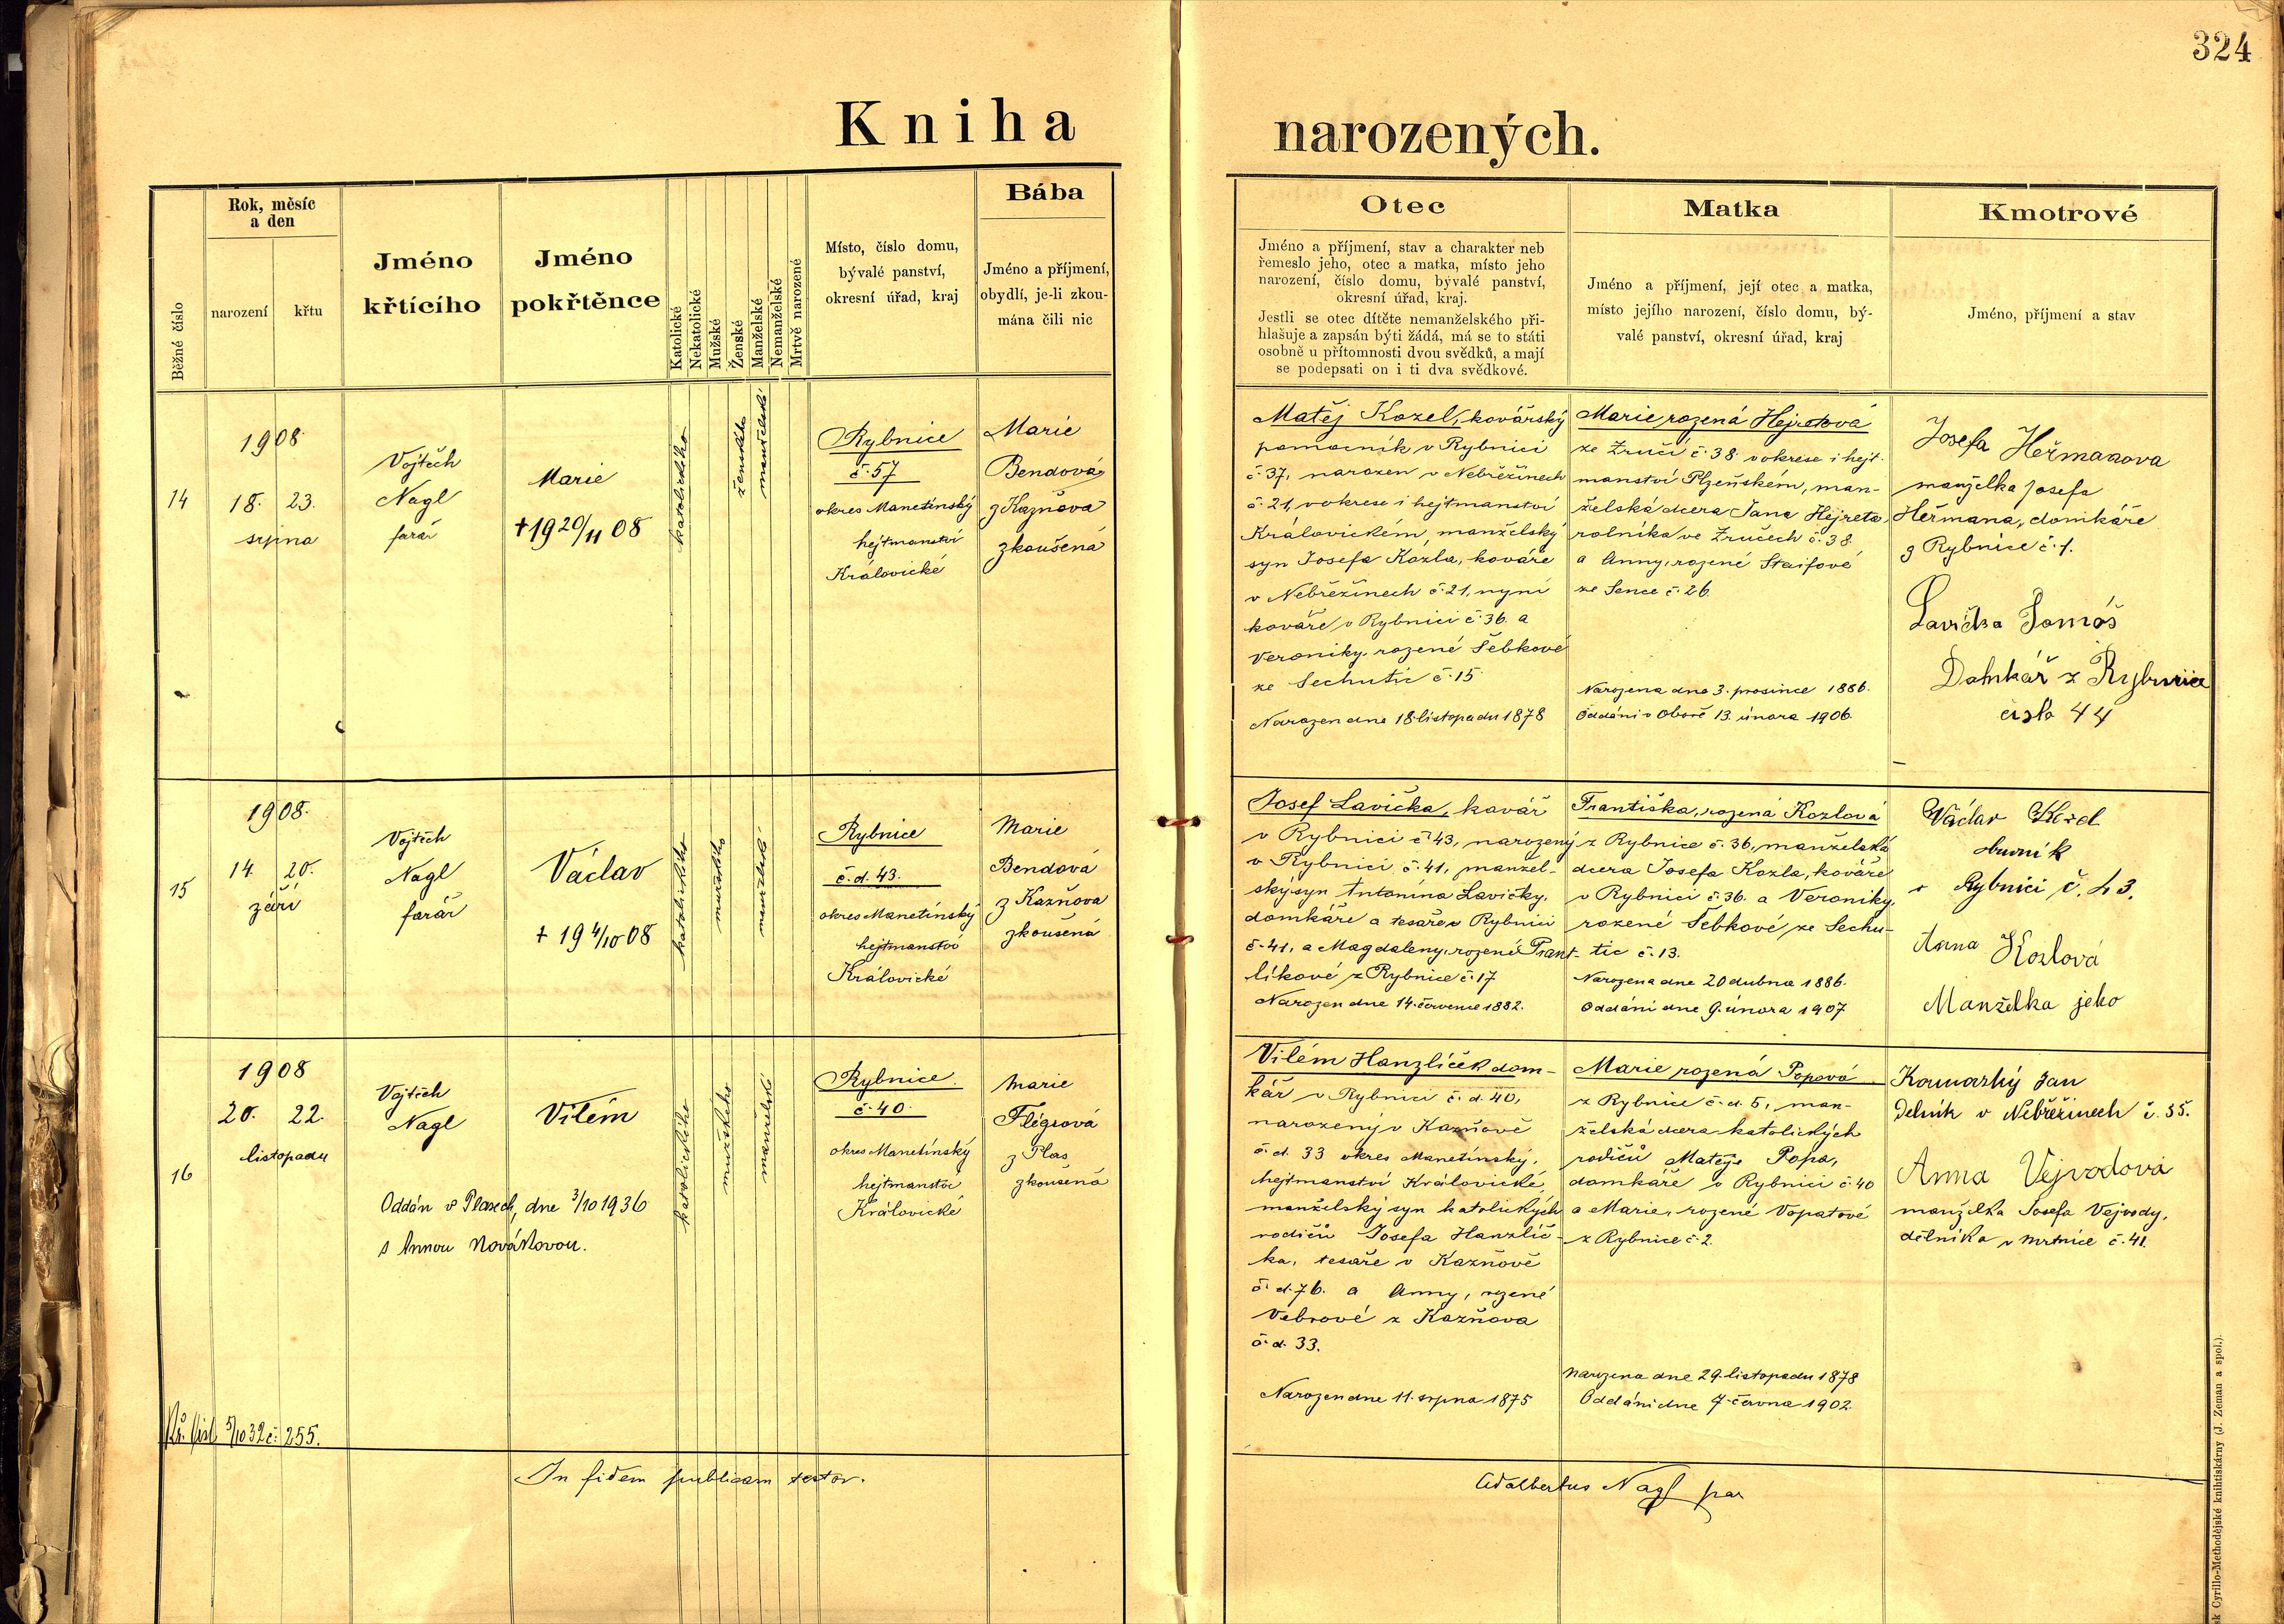 324
Kniha narozených.
Běžné číslo
Rok, měsíc
a den
narození
křtu
Jméno
křtícího
Jméno
pokřtěnce
Katolické
Nekatolické
Mužské
Ženské
Manželské
Nemanželské
Mrtvě narozené
Místo, číslo domu,
bývalé panství,
okresní úřad, kraj
Bába
Jméno a příjmení,
obydlí, je-li zkou-
mána čili nic
Otec
Jméno a příjmení, stav a charakter neb
řemeslo jeho, otec a matka, místo jeho
narození, číslo domu, bývalé panství,
okresní úřad, kraj.
Jestli se otec dítěte nemanželského při-
hlašuje a zapsán býti žádá, má se to státi
osobně u přítomnosti dvou svědků, a mají
se podepsati on i ti dva svědkové.
Matka
Jméno a příjmení, její otec a matka,
místo jejího narození, číslo domu, bý-
valé panství, okresní úřad, kraj
Kmotrové
Jméno, příjmení a stav
14
1908
18. 23.
srpna
Vojtěch
Nagl
farář
Marie
†19 20/11 08
katolického
ženského
manželské
Rybnice
č. 57
okres Manetínský
hejtmanství
Královické
Marie
Bendová
z Kaznova
zkoušená
Matěj Kozel, kovářský
pomocník v Rybnici
č. 37, narozen v Nebřežinech
č. 21, v okrese i hejtmanství
Královickém, manželský
syn Josefa Kozla, kováře
v Nebřežinech č. 21, nyní
kováře v Rybnici č. 36. a
Veroniky, rozené Šebkové
ze Sechutic č. 15
Narozen dne 18. listopadu 1878
Marie rozená Hejretová
ze Zručí č. 38 v okrese i hejt-
manství Plzeňském, man-
želská dcera Jana Hejreta,
rolníka ve Zručech č. 38.
a Anny, rozené Staifové
ze Sence č. 26.
Narozena dne 3. prosince 1886.
Oddáni v Oboře 13. února 1906.
Josefa Heřmanova
manželka Josefa
Heřmana, domkáře
z Rybnice č. 1.
Lavička Tomáš
Domkář z Rybnice
číslo 44
15
1908.
14. 20.
září
Vojtěch
Nagl
farář
Václav
† 19 4/10 08
katolického
mužského
manželské
Rybnice
č. d. 43.
okres Manetínský
hejtmanství
Královické
Marie
Bendová
z Kazňova
zkoušená
Josef Lavička, kovář
v Rybnici č. 43, narozený
v Rybnici č. 41, manžel-
ský syn Antonína Lavičky,
domkáře a tesaře v Rybnici
č. 41, a Magdaleny, rozené Frant-
líkové z Rybnice č. 17
Narozen dne 14. července 1882.
Františka, rozená Kozlová
z Rybnice č. 36, manželská
dcera Josefa Kozla, kováře
v Rybnici č. 36. a Veroniky,
rozené Šebkové, ze Sechu-
tic č. 13.
Narozena dne 20 dubna 1886.
Oddáni dne 9. února 1907
Václav
obuvník
v Rybnici č. 43.
Anna Kozlová
Manželka jeho
16
1908
20. 22.
listopadu
Vojtěch
Nagl
Vilém
Oddán v Plasech, dne 3/10 1936
s Annou Novákovou.
katolického
mužského
manželské
Rybnice
č. 40.
okres Manetínský
hejtmanství
Královické
Marie
Flégrová
z Plas
zkoušená
Vilém Hanzlíček dom-
kář v Rybnici č. d. 40,
narozený v Kaznově
č. d. 33 okres Manetínský,
hejtmanství Královické,
manželský syn katolických
rodičů Josefa Hanzlíč-
ka, tesaře v Kazňově
č. d. 76. a Anny, rozené
Vebrové z Kazňova
č. d. 33.
Narozen dne 11. srpna 1875
Marie rozená Popová
z Rybnice č. d. 5, man-
želská dcera katolických
rodičů Matěje Popa,
domkáře v Rybnici č. 40
a Marie, rozené Vopatové
z Rybnice č. 2.
Narozena dne 29. listopadu 1878
Oddáni dne 7. června 1902.
Jan
Dělník v Nebřežinech č. 55.
Anna Vejvodová
manželka Josefa Vejvody,
dělníka v Mrtnice č. 41.
5/10 32 č: 255.
In fidem publicam testor.
Adalbertus Nagl par
Cyrillo-Methodějské knihtiskárny (J. Zeman a spol.).